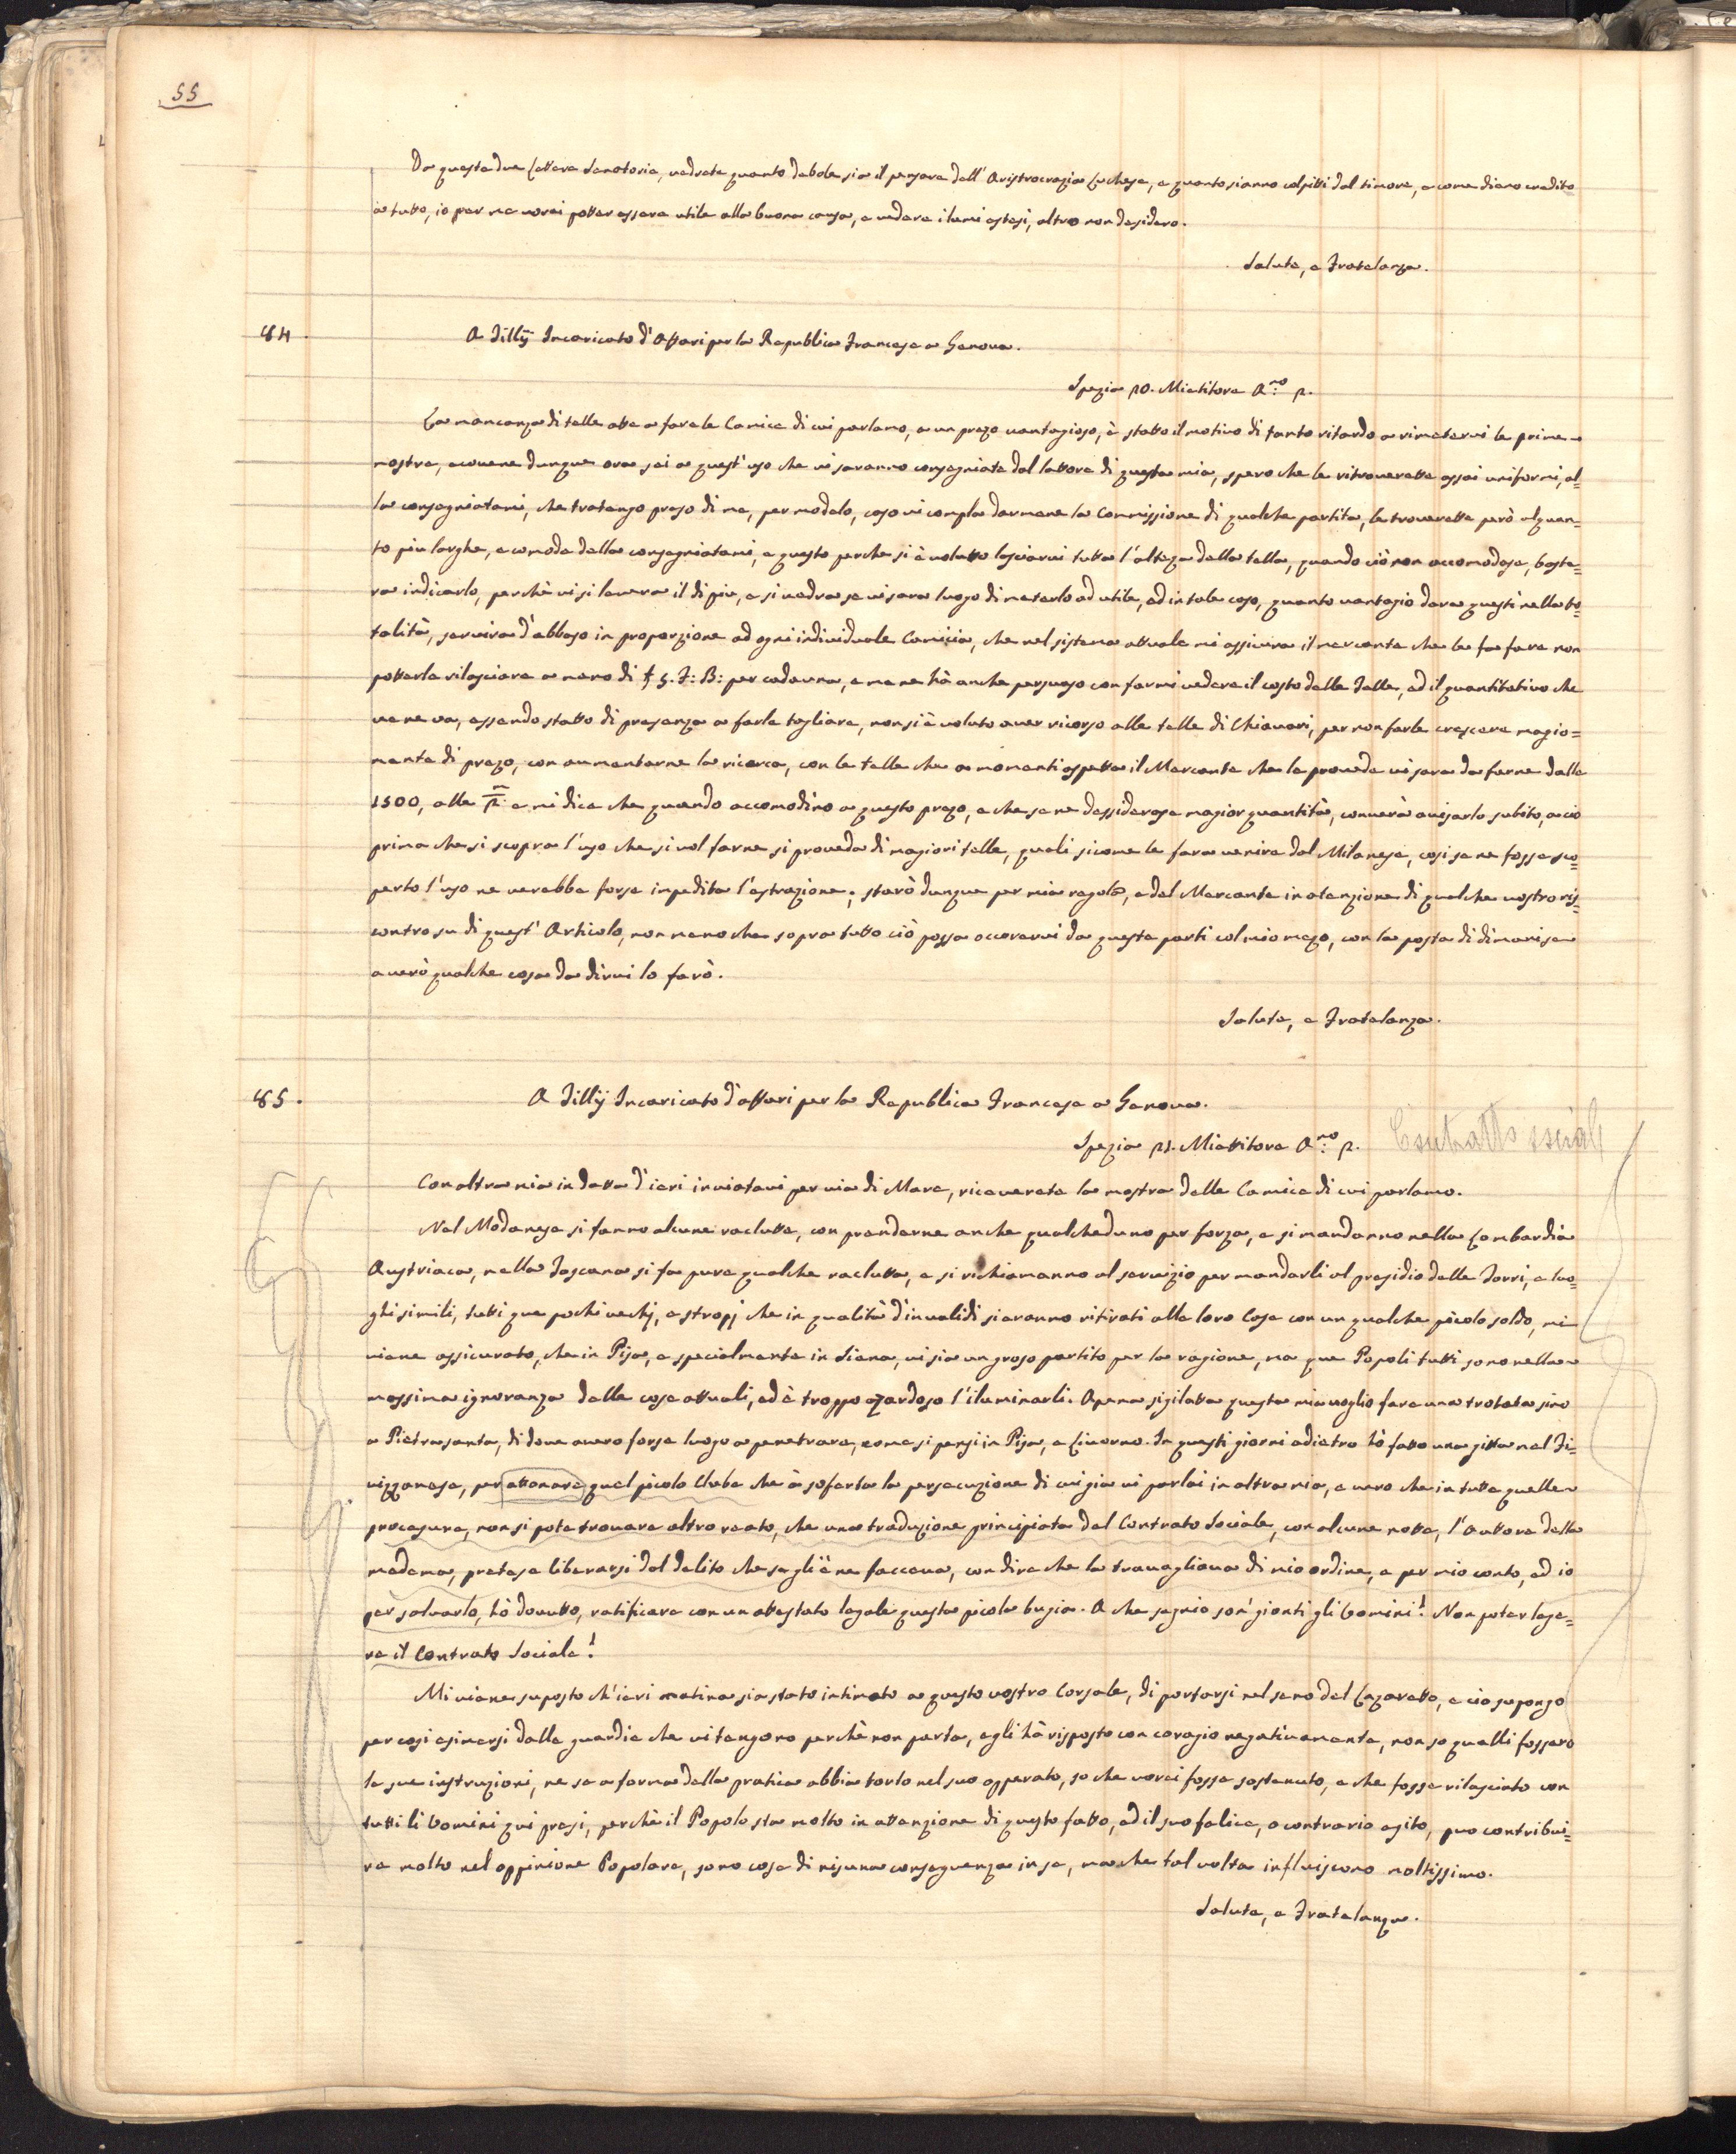 55
Da queste due Lettere Senatorie, vedrete quanto debole sia il pensare dell' Aristrocrazia Luchese, e quanto sianno colpitti dal timore, e come diano credito
a tutto, io per me vorei potter essere utile alla buona causa, e vedere i lumi estesi, altro non desidero.
Salute, e Fratelanza.
84
A Tillÿ Incaricato d' Affari per la Republica Francese a Genova.
Spezia 20. Mietitore A.no 2.
La mancanza di telle atte a fare le Camice di cui parlamo, a un prezo vantagioso, è statto il motivo di tanto ritardo a rimetervi le prime
mostre, acovene dunque ora sei a quest' uso che vi saranno consegniate dal lattore di questa mia, spero che le ritroverette assai uniformi, al=
la consegniatami, che tratengo preso di me, per modelo, caso vi compla darmene la Commissione di qualche partita, le troverette però alquan=
to piu larghe, e comode della consegniatami, e questo perche si è volutto lasciarvi tutta l' alteza della tella, quando ciò non accomodase, baste=
ra indicarlo, perchè vi si levera il di piu, e si vedra se vi sara luogo di meterlo ad utile, ed in tale caso, quanto vantagio dara questi nella to=
talità, servira d' abbaso in proporzione ad ogni individuale Camicia, che nel sistema attuale mi assicura il mercante che le fa fare non
potterle rilasciare a meno di £ 5. F: B: per cadauna, e me ne hà anche persuaso con farmi vedere il costo delle Telle, ed il quantitativo che
ve ne va, essendo statto di presenza a farle tagliare, non si è voluto aver ricorso alle telle di Chiavari, per non farle crescere magior=
mente di prezo, con aumentarne la ricerca, con le telle che a momenti aspetta il Mercante che le provede vi sara da farne dalle
1500, alle 2m e mi dice che quando accomodino a questo prezo, e che se ne dessiderase magior quantità, converà avisarlo subito, acciò
prima che si scopra l' uso che si vol farne si proveda di magiori telle, quali sicome le fara venire dal Milanese, così se ne fosse sco=
perto l' uso ne verebbe forse impedita l' estrazione; starò dunque per mia regola, e del Mercante in atenzione di qualche vostro ris=
contro su di quest' Articolo, non meno che sopra tutto ciò possa occorervi da queste parti col mio mezo, con la posta di dimani se
averò qualche cosa da dirvi lo farò.
Salute, e Fratelanza.
85.
A Tillÿ Incaricato d' affari per la Republica Francese a Genova.
Spezia 21. Miettitore A.no 2.
Contratto sociale
Con altra mia in datta d' ieri inviatavi per via di Mare, riceverete la mostra delle Camice di cui parlamo.
Nel Modanese si fanno alcune reclutte, con prenderne anche qualcheduno per forza, e si mandanno nella Lombardia
Austriaca, nella Toscana si fa pure qualche reclutta, e si richiamanno al servizio per mandarli al presidio delle Torri, e luo=
ghi simili, tutti que pochi vechj, e stropj che in qualità d' invalidi si eranno ritirati alle loro Case con un qualche picolo soldo, mi
viene assicurato, che in Pisa, e specialmente in Siena, vi sia un groso partito per la ragione, ma que Popoli tutti sono nella
massima ignoranza delle cose attuali, ed è troppo azardoso l' iluminarli. Apena sigilatta questa mia voglio fare una trotata sino
a Pietrasanta, di dove avero forse luogo a penetrare, come si pensi in Pisa, e Livorno. In questi giorni adietro hò fatto una gitta nel Fi=
vizzanese, per attonare quel picolo Clube che à soferta la persecuzione di cui gia vi parlai in altra mia, e vero che in tutte quelle
procesure, non si pote trovare altro reato, che una traduzione principiata del Contrato Sociale, con alcune notte, l' Auttore della
medema, pretese liberarsi dal delito che se gli è ne facceva, con dire che la travagliava di mio ordine, e per mio conto, ed io
per salvarlo, hò dovutto, ratificare con un attestato legale questa picola bugia. A che segnio son' gionti gli Uomini! Non poter lege=
re il Contrato Sociale!
Mi viene suposto ch' ieri matina sia stato intimato a questo vostro Corsale, di portarsi nel seno del Lazaretto, e cio supongo
per cosi esimersi dalle guardie che vi tengono perchè non parta, egli hà risposto con coragio negativamente, non so qualli fossero
le sue instruzioni, ne se a forma della pratica abbia torto nel suo opperato, so che vorei fosse sostenuto, e che fosse rilasciato con
tutti li Uomini qui presi, perchè il Popolo sta molto in attenzione di questo fatto, ed il suo felice, o contrario esito, puo contribui=
re molto nel oppinione Popolare, sono cose di nisuna conseguenza in se, ma che tal volta influiscono moltissimo.
Salute, e Fratelanza.